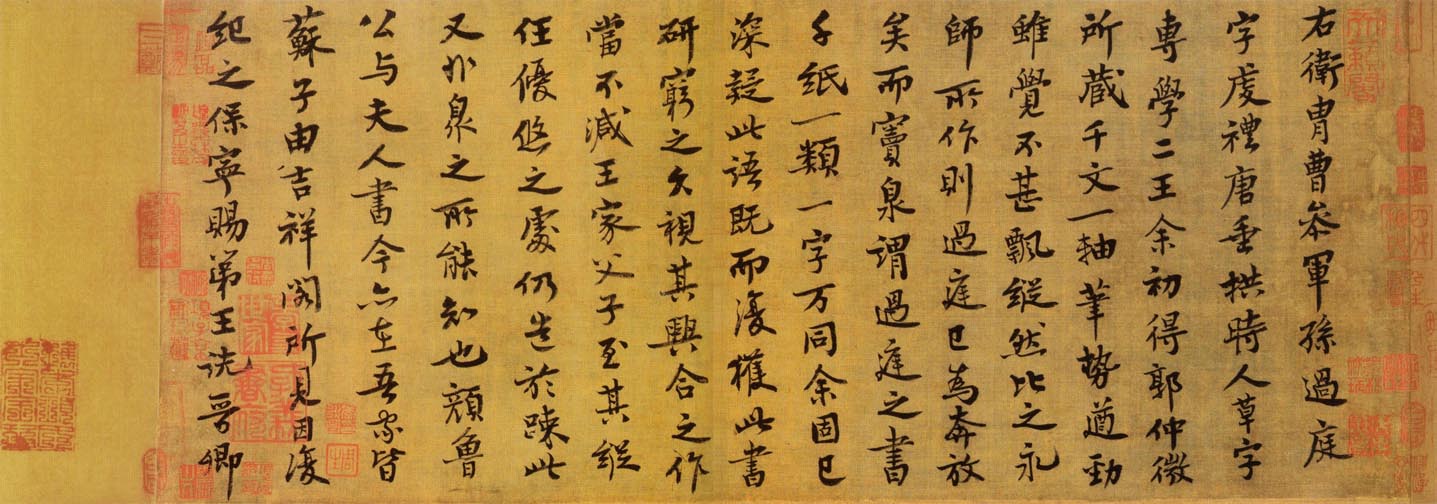 右衛胄曹參軍孫過庭
字虔禮唐垂拱時人草字
專學二王余初得郭仲微
所藏千文一軸筆勢遒勁
雖覺不甚飄縱然比之永
師所作則過庭已為奔放
矣而竇泉謂過庭之書
千紙一類一字万同余固已
深疑此語既而復獲此書
研窮之久視其興合之作
當不減王家父子至其縱
任優悠之處仍造於疎此
又非泉之所能知也顏魯
公与夫人書今亦在吾家皆
蘇子由吉祥閣所見因復
紀之保寧賜弟王詵晉卿